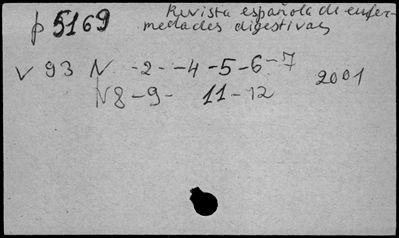 p 5169 Revista española de enfer-
medades digestivas
v 93 N -2- -4-5-6-7 2001
N8-9- 11-12